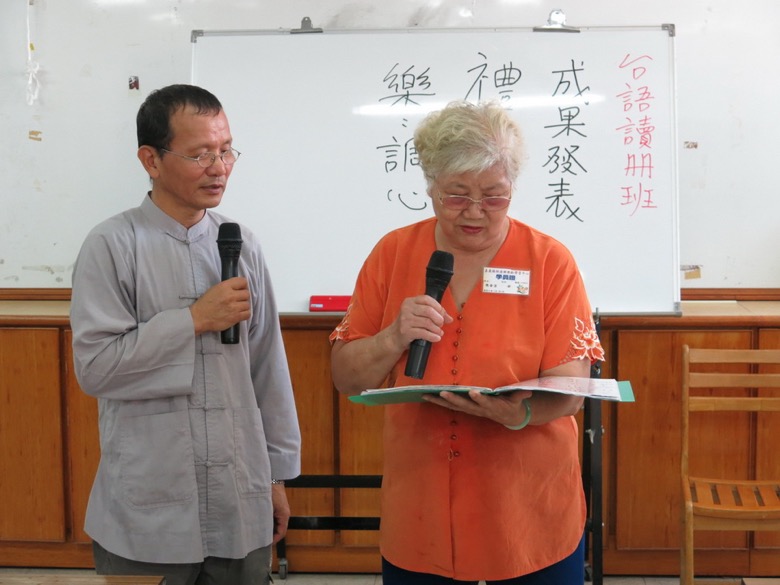 台語讀冊班
成果發表
禮
樂:調心
學員證